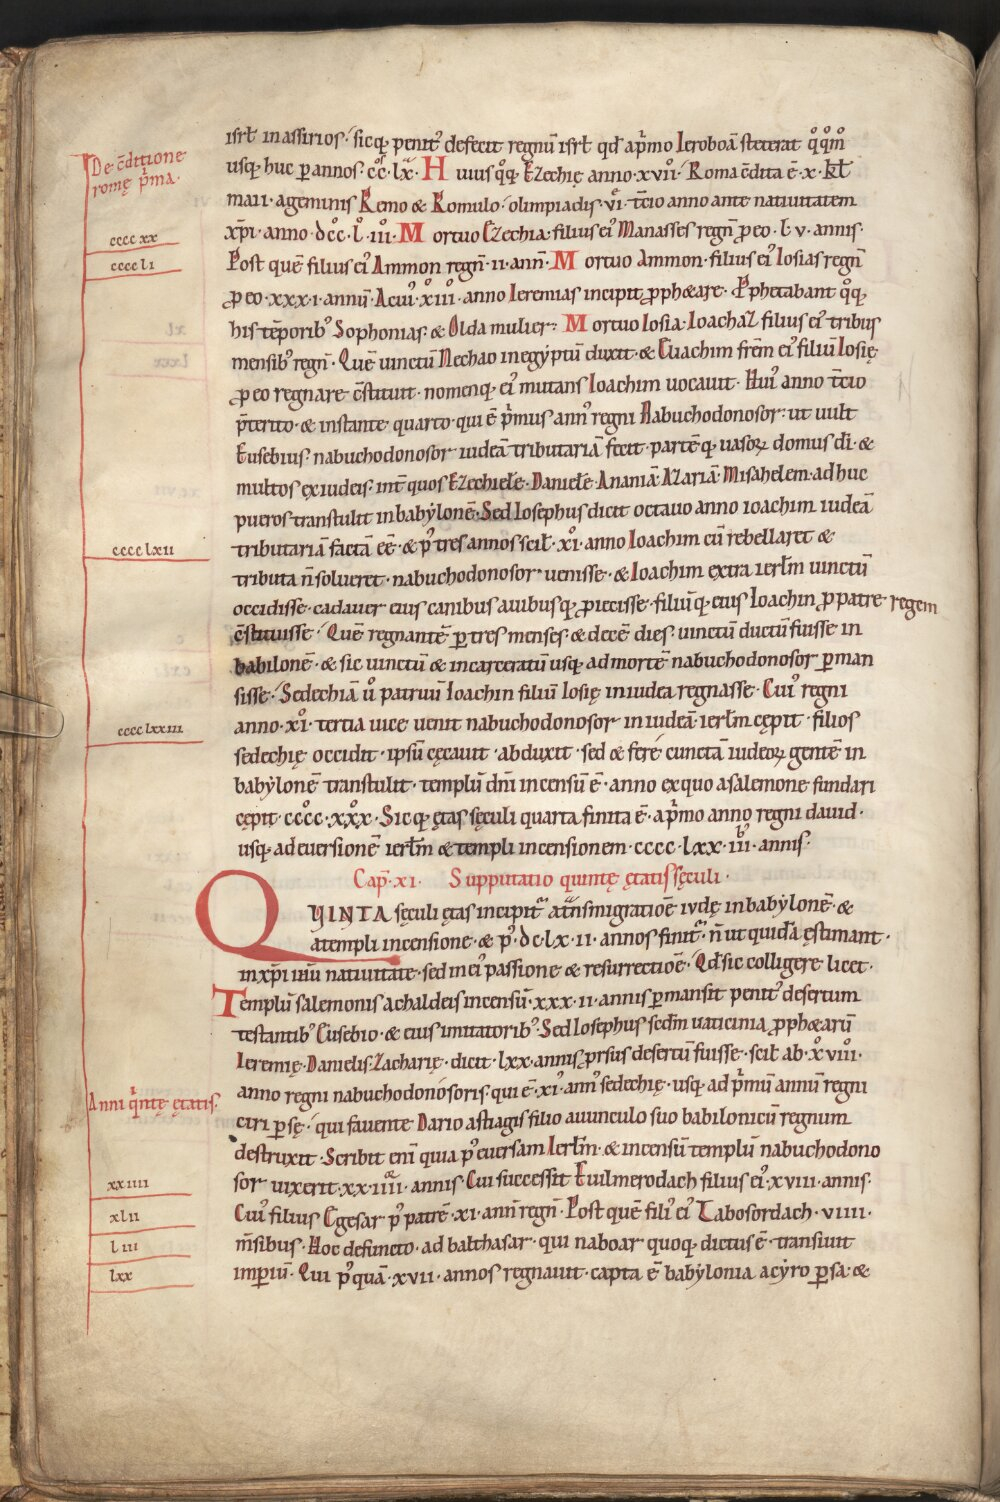 De c̄ditione
romę p̄ma.
cccc xx
cccc li
cccc lxii
cccc lxxiii
Anni q̄ntę ętatis.
xx iiii
xlii
l iii
lxx
isrł in assirios. sicq; penit᾽ defecit regnū isrł qđ ap̄mo Ieroboā steterat
usq; huc p annos. cc. lx. Huius qq; Ezechię anno xvii. Roma c̄dita ē. x. kł
maii. ageminis Remo & Romulo. olimpiadis. vi. t̄cio anno ante nativitatem
xp̄i. anno. dcc. l. iii. Mortuo Ezechia. filius ei᾽ Manasses regn̄ p eo. l v. annis.
Post quē filius ei᾽ Ammon regn̄. ii. ann̄. Mortuo Ammon. filius ei᾽ Iosias regn̄
p eo. xxx. i. annū. Acui᾽ xiii. anno Ieremias incipit pph&are. Pphetabant qq;
his tēporib᾽ Sophonias. & Olda mulier. Mortuo Iosia. Ioachaz filius ei᾽ tribus
mensib᾽ regn̄. Quē uinctū Nechao in egẏptū duxit. & Eliachim frēm ei᾽ filiū Iosię
p eo regnare c̄stituit. nomenq; ei᾽ mutans Ioachim uocauit. Hui᾽ anno t̄cio
p̄terito. & instante quarto. qui ē p̄mus ann᾽ regni Nabuchodonosor. ut uult
Eusebius. nabuchodonosor iudeā tributariā fecit. partēq; uasoꝝ domus dī. &
multos ex iudeis. int̄ quos Ezechielē. Danielē. Ananiā. Azariā. Misahelem. adhuc
pueros transtulit in babẏlonē. Sed Iosephus dicit octauo anno ioachim iudeā
tributariā factā eē. & p᾽ tres annos scił. xi. anno Ioachim cū rebellaret &
tributa n̄ solueret. nabuchodonosor uenisse. & Ioachim extra ierłm uinctū
occidisse. cadauer eius canibus auibusq; proiecisse. filiūq; eius Ioachin p patre regem
c̄stituisse. Quē regnantē p tres menses. & decē dies. uinctū ductū fuisse in
babilonē. & sic uinctū & incarceratū usq; ad mortē nabuchodonosor p man
sisse. Sedechiā ů patruū Ioachin filiū Iosię in iudea regnasse. Cui᾽ regni
anno. xi. tertia uice uenit nabuchodonosor in iudeā. ierłm cępit. filios
sedechię occidit. ipsū cęcauit. abduxit. sed & ferē cunctā iudeoꝝ gentē in
babẏlonē transtulit. templū dn̄i incensū ē. anno ex quo a salemone fundari
cępit. cccc. xxx. Sicq; ętas sęculi quarta finita ē. ap̄mo anno regni dauid.
usq; ad euersionē ierłm & templi incensionem. cccc. lxx. iii. annis.
Cap̄. xi. Supputatio quintę ętatis sęculi.
QVINTA sęculi ętas incipit᾽ at̄nsmigratioē iudę in babẏlonē. &
a templi incensione. & p᾽. dc. lx. ii. annos finit᾽. n̄ ut quidā ęstimant.
in xp̄i iħu natiuitate. sed in ei᾽ passione & resurrectioē. Qđ sic colligere licet.
Templū salemonis achaldeis incensū. xxx. ii. annis p mansit penit᾽ desertum
testantib᾽ Eusebio. & eius imitatorib᾽. Sed Iosephus secd̄m uaticinia pph&arū
Ieremię. Danielis. Zacharię. dicit. lxx. annis prsus desertū fuisse. scił ab. xviii.
anno regni nabuchodonosoris. qui ē. xi᾽ ann᾽ sedechię. usq; ad p̄mū annū regni
ciri p sę. qui fauente Dario astiagis filio auunculo suo babilonicū regnum
destruxit. Scribit enī quia p᾽ euersam Ierłm. & incensū templū nabuchodono
sor uixerit. xx. iiii. annis. Cui successit Euilmerodach filius ei᾽. xviii. annis.
Cui᾽ filius Egesar p᾽ patrē. xi. ann̄ regn̄. Post quē fili᾽ ei᾽ Labosordach. viiii.
m̄sibus. Hoc defuncto. ad balthasar. qui naboar quoq; dictus ē. transiuit
imperiū. Qui p᾽quā. xvii. annos regnauit. capta ē babẏlonia a cẏro p sa. &